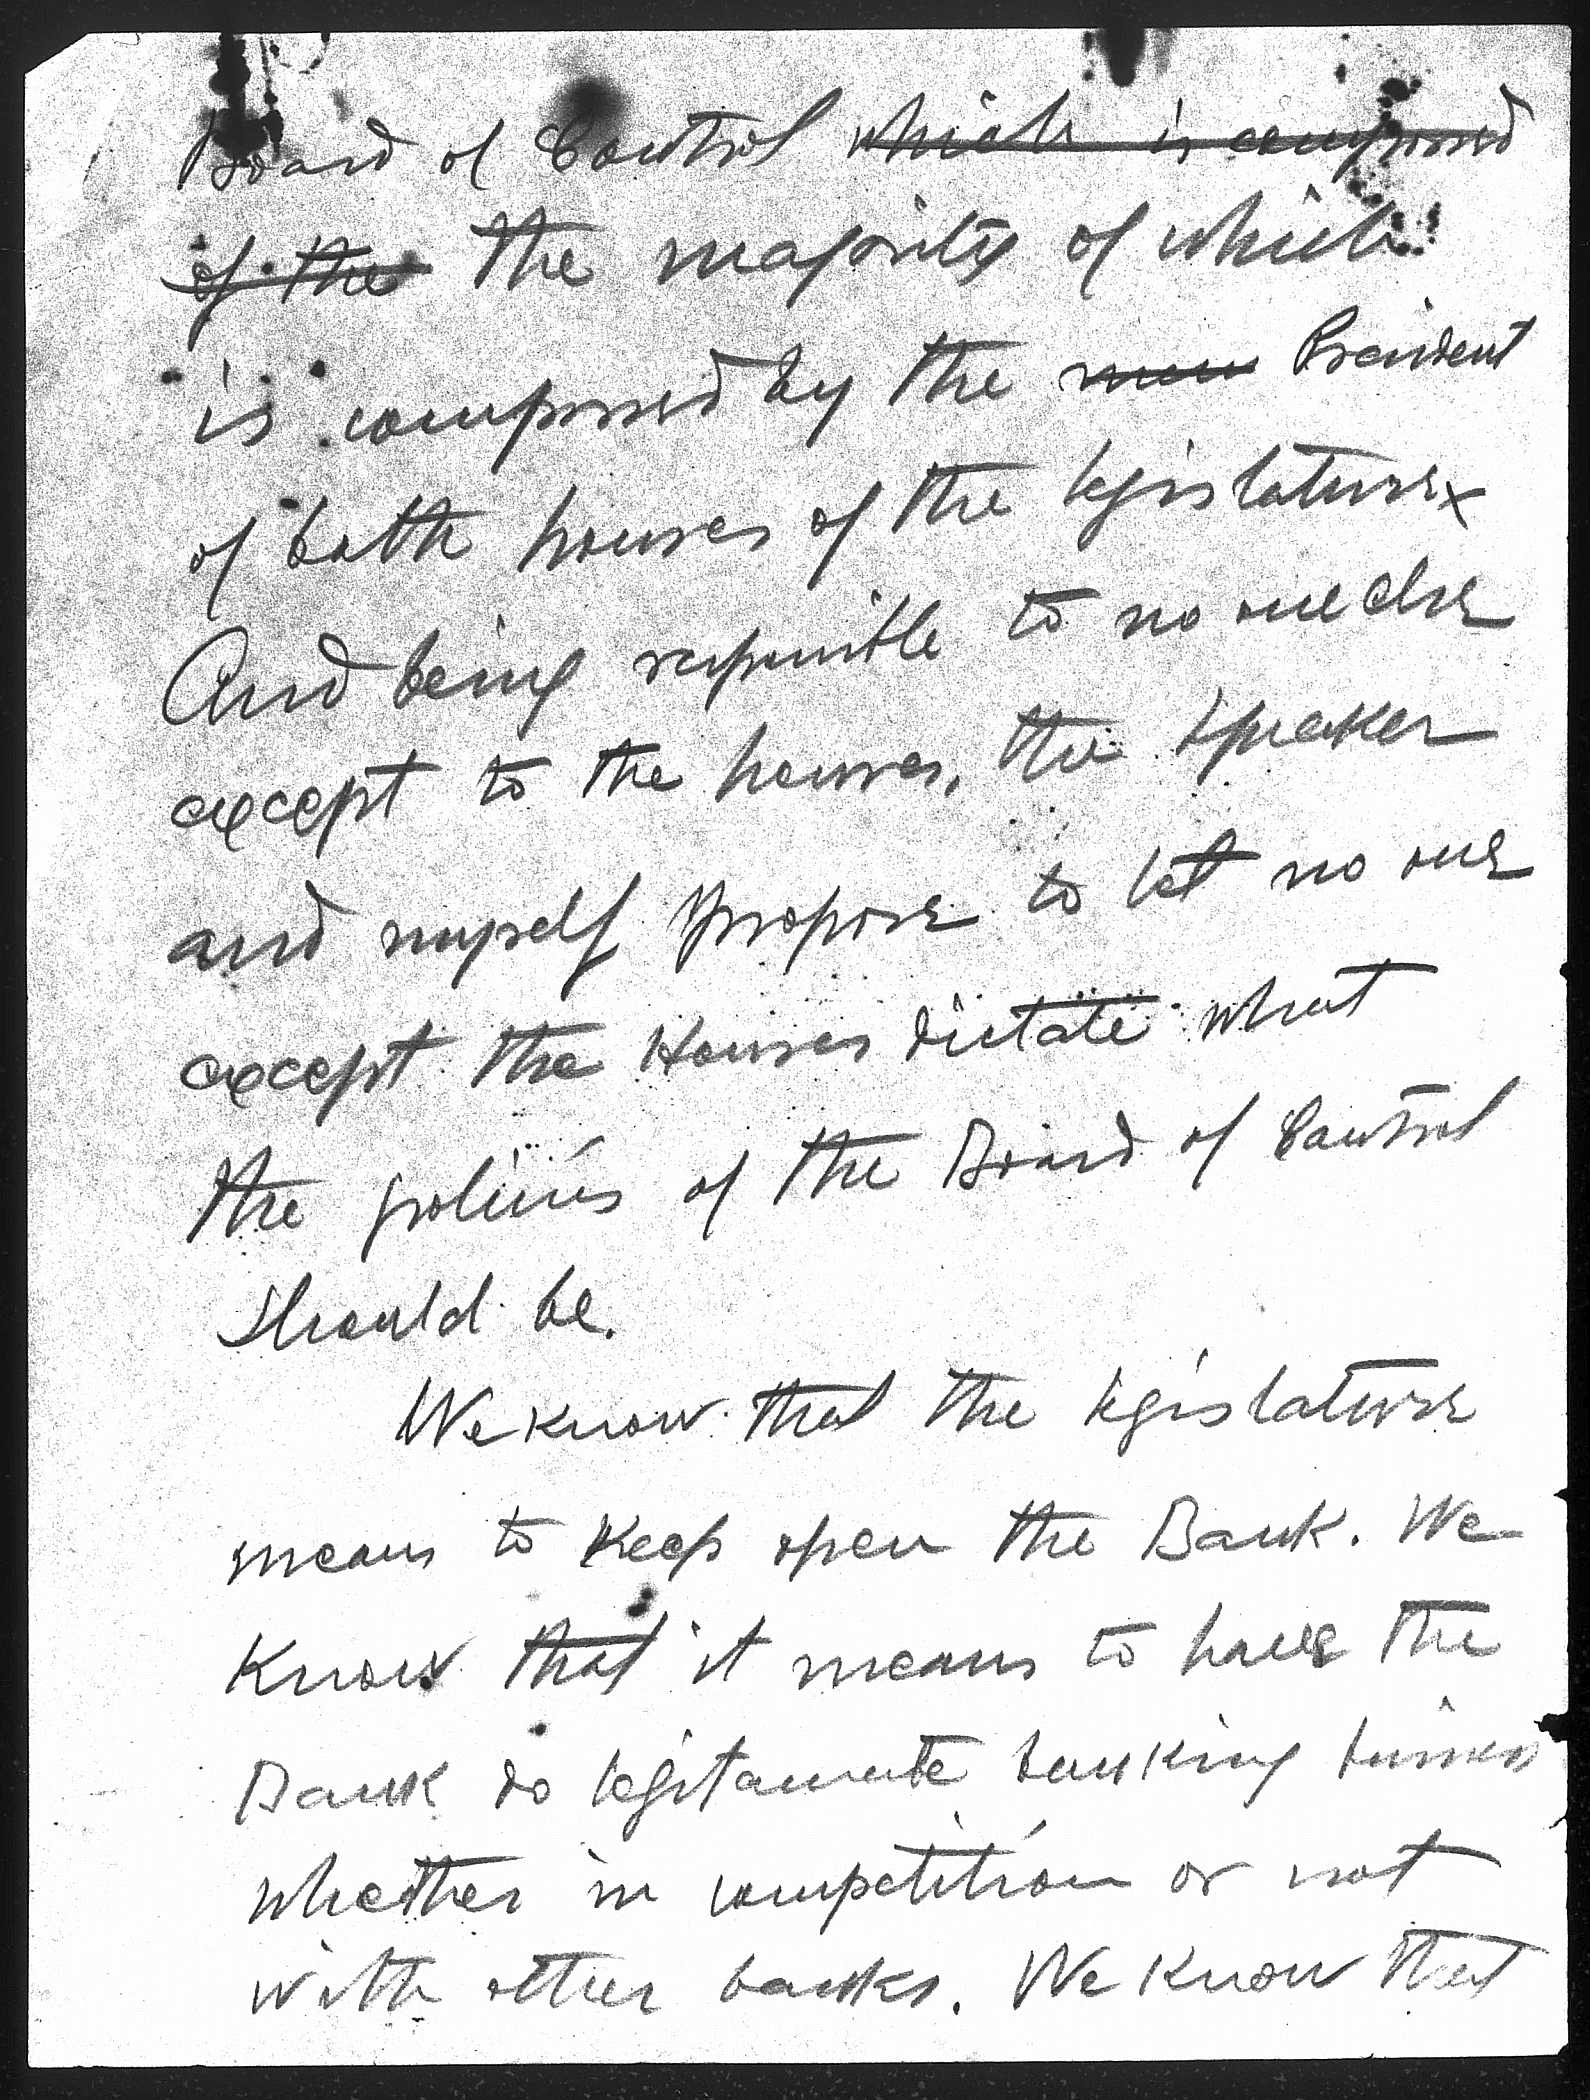 Board of Control which is composed
of the the majority of which
is composed by the men President
of both houses of the legislature
And being responsible to no one else
except to the houses, the speaker
and myself propose to let no one
except the Houses dictate what
the policies of the Board of Control
should be.
We know that the legislature
means to keep open the Bank. We
know that it means to have the
Bank do legitamate banking business
whether in competition or not
with other banks. We know that